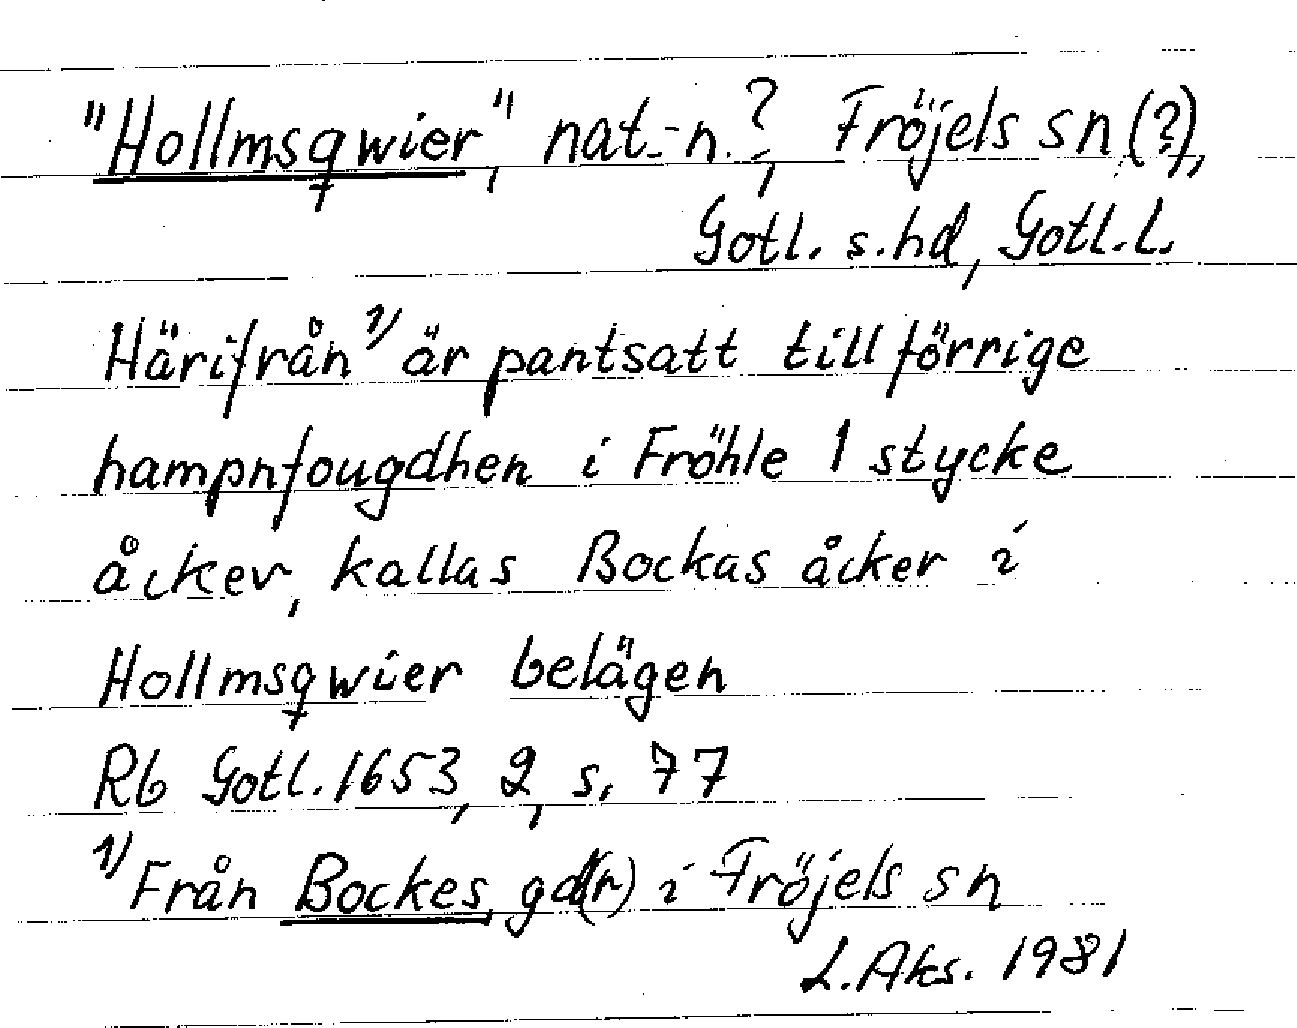 "Hollmsqwier", nat.-n.?, Fröjels sn (?),
Gotl. s. hd, Gotl. L.
Härifrån 1) är pantsatt till förrige
hampnfougdhen i Fröhle 1 stycke
åcker, kallas Bockas åcker i
Hollmsqwier belägen
Rb Gotl. 1653, 2, s. 77
1) Från Bockes, gd(r) i Fröjels sn
L. Aks. 1981